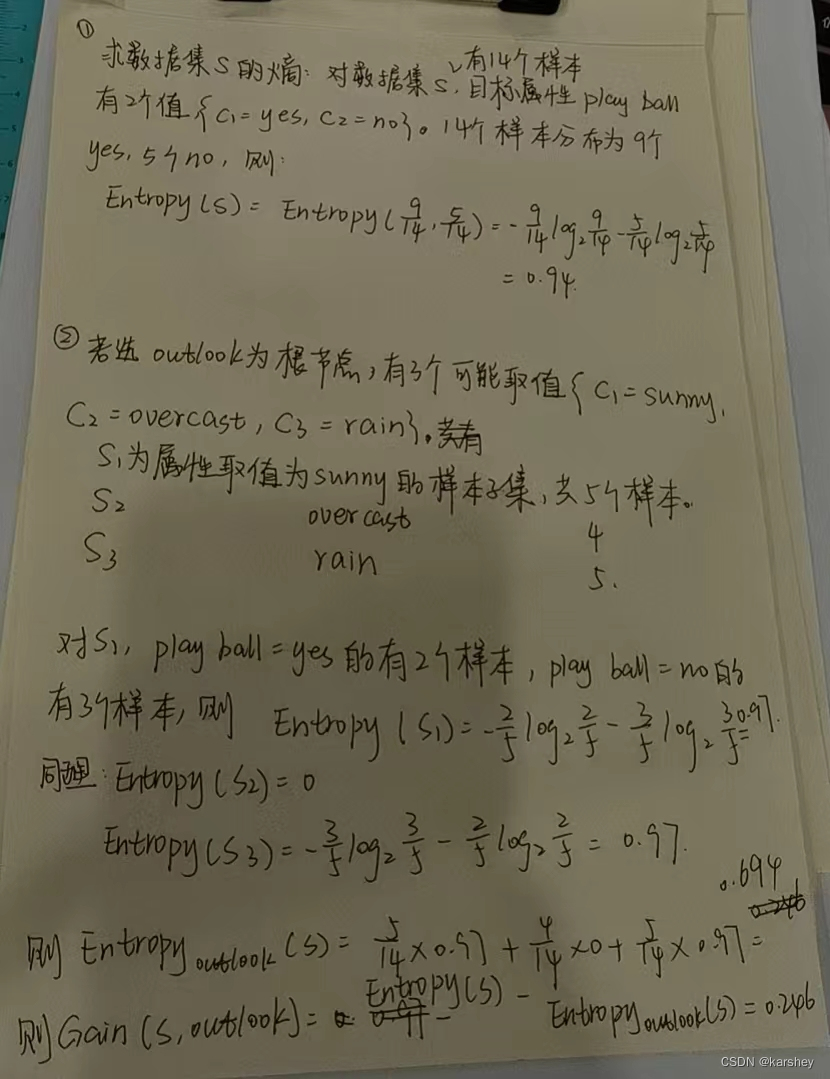 ①
求数据集S的熵：对数据集S，有14个样本
目标属性play ball
有2个值{C₁=yes, C₂=no}。14个样本分布为9个
yes, 5个no，则：
Entropy(S) = Entropy(9/14, 5/14) = -9/14 log₂ 9/14 - 5/14 log₂ 5/14
= 0.94.
② 若选outlook为根节点，有3个可能取值{C₁=sunny,
C₂=overcast, C₃=rain}。
S₁为属性取值为sunny的样本子集，共5个样本。
S₂ overcast 4
S₃ rain 5.
对S₁, play ball=yes的有2个样本, play ball=no的
有3个样本, 则 Entropy(S₁) = -2/5 log₂ 2/5 - 3/5 log₂ 3/5 = 0.97.
同理: Entropy(S₂) = 0
Entropy(S₃) = -3/5 log₂ 3/5 - 2/5 log₂ 2/5 = 0.97.
则 Entropy outlook (S) = 5/14 × 0.97 + 4/14 × 0 + 5/14 × 0.97 = 0.694
则Gain(S, outlook) = Entropy(S) - Entropy outlook (S) = 0.246
CSDN @karshey